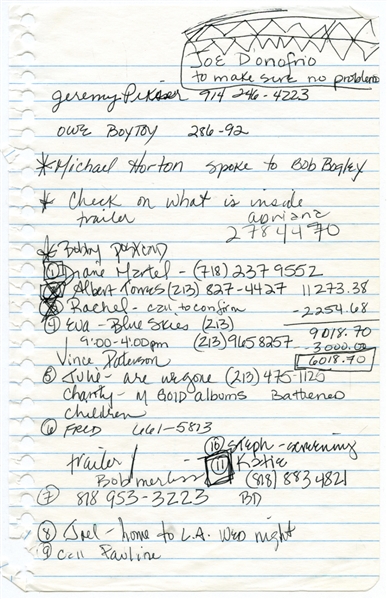 Joe Donofrio
to make sure no problems
Jeremy 914 246-4223
OWE BOYTOY 286-92
* Michael Horton spoke to Bob Bagley
* Check on what is inside
trailer
2784470
* Bobby
1 Diane Martel - (718) 237 9552
Albert Torres (213) 827-4427 11273.38
Rachel - call to confirm -2254.68
4 Eva - Blue Skies (213) 9018.70
9:00-4:00pm (213) 9658257 -3000.00
Vince Paterson 6018.70
5 Julie - are we gone (213) 475-1120
Charity - M Gold albums Battered
children
6 FRED 661-5813
10 Steph - screening
trailer / 11 Katie
Bob (818) 883 4821
7 818 953-3223 BD
8 Joel - home to L.A. Wed night
9 call Pauline